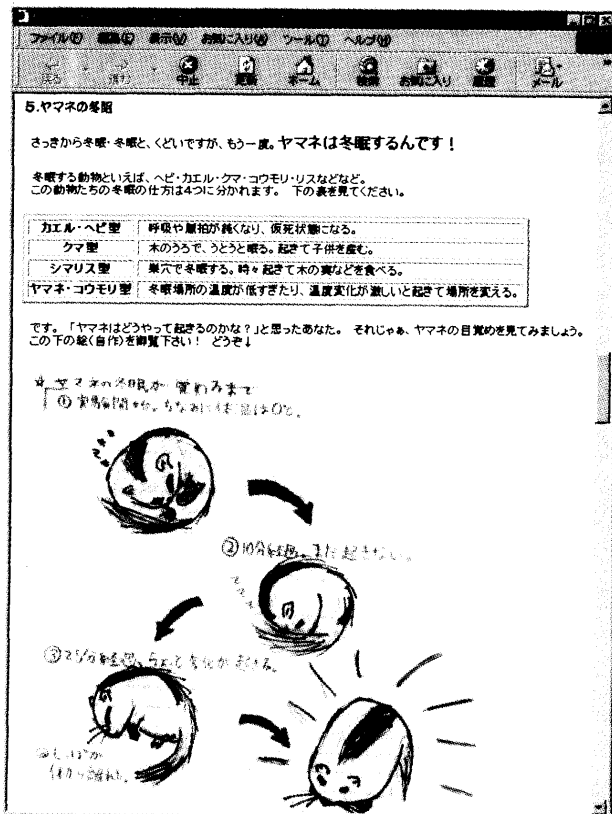 ファイル(F) 編集(E) 表示(V) お気に入り(A) ツール(T) ヘルプ(H)
戻る 進む 中止 更新 ホーム 検索 お気に入り 履歴 メール
5.ヤマネの冬眠
さっきから冬眠・冬眠と、くどいですが、もう一度。ヤマネは冬眠するんです！
冬眠する動物といえば、ヘビ・カエル・クマ・コウモリ・リスなどなど。
この動物たちの冬眠の仕方は4つに分かれます。 下の表を見てください。
カエル・ヘビ型 呼吸や脈拍が鈍くなり、仮死状態になる。
クマ型 木のうろで、うとうと眠る。起きて子供を産む。
シマリス型 巣穴で冬眠する。時々起きて木の実などを食べる。
ヤマネ・コウモリ型 冬眠場所の温度が低すぎたり、温度変化が激しいと起きて場所を変える。
です。「ヤマネはどうやって起きるのかな？」と思ったあなた。 それじゃぁ、ヤマネの目覚めを見てみましょう。
この下の絵(自作)を御覧下さい！ どうぞ↓
ヤマネの冬眠が覚めるまで
①実験開始。ちなみに体温は0℃。
②10分経過。まだ起きない。
③25分経過。ちょっと変化が起きる。
しっぽが
体から離れた。